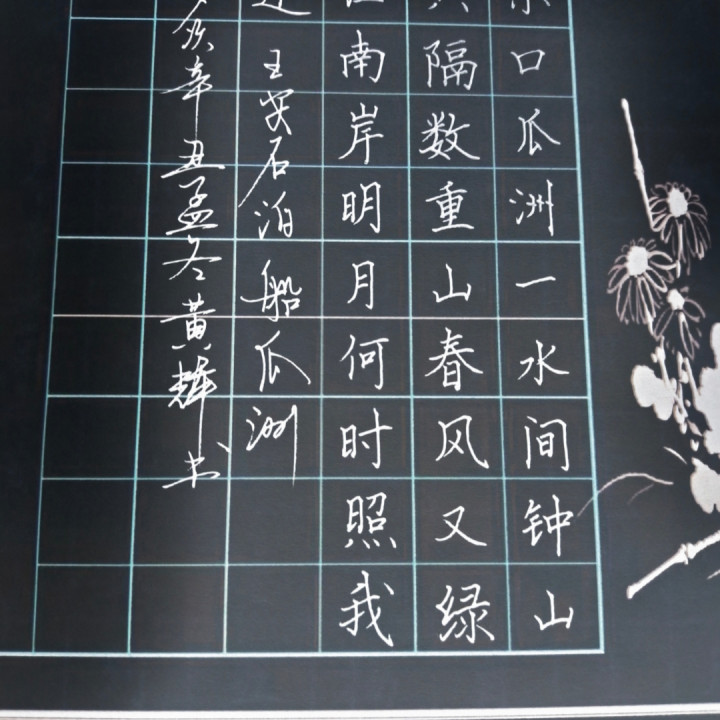 京口瓜洲一水间钟山
只隔数重山春风又绿
江南岸明月何时照我
还王安石泊船瓜洲
辛丑孟冬黄辉书